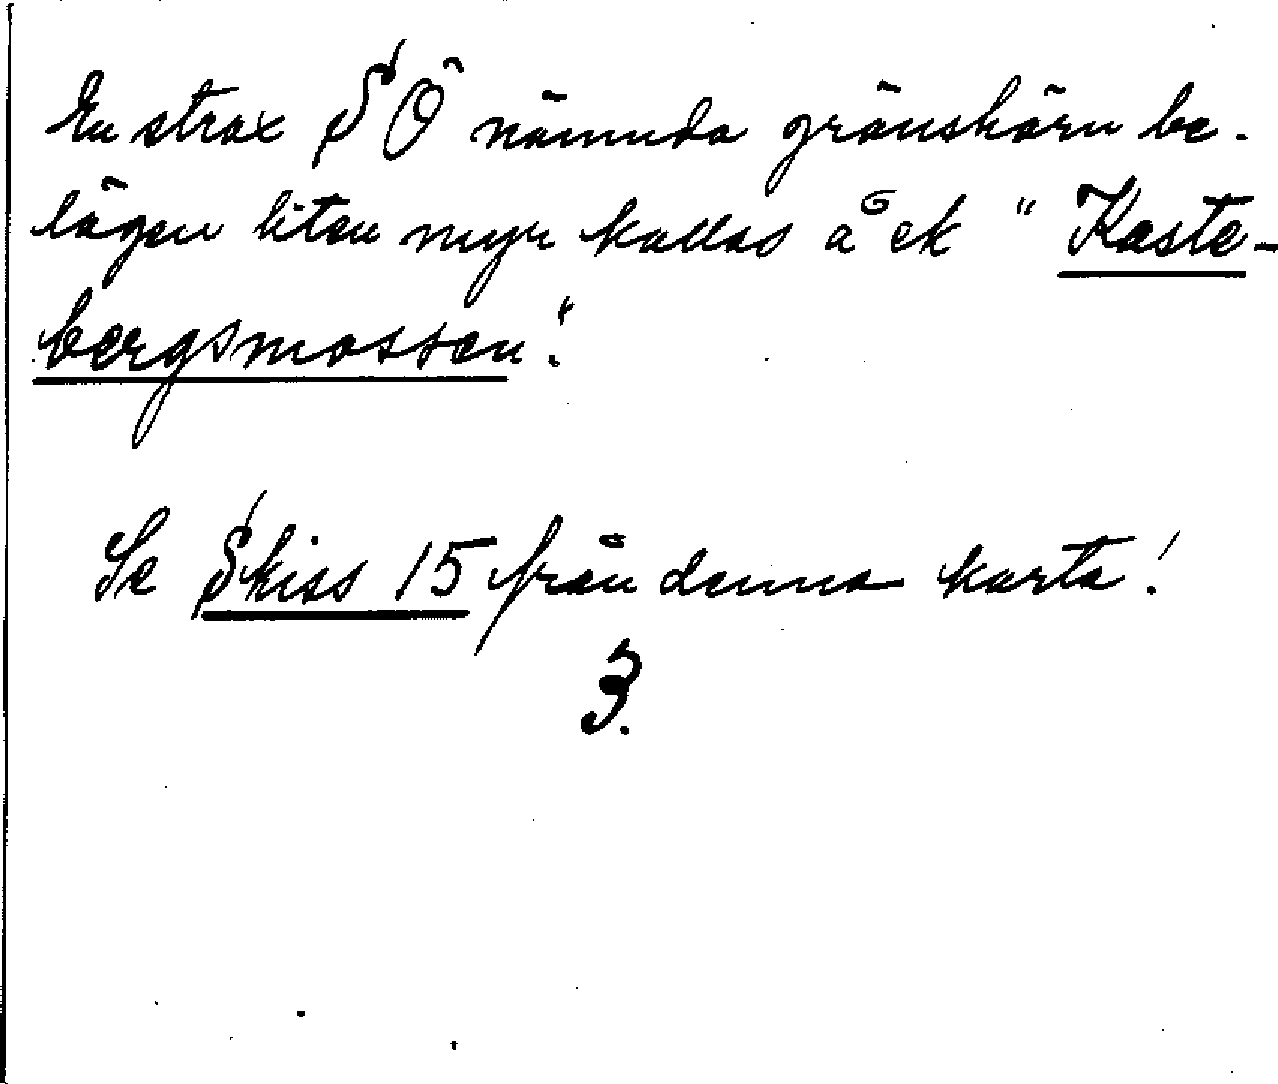 En strax SÖ nämnda gränshörn be-
lägen liten myr kallas å ek "Kaste-
bergsmossen".
Se Skiss 15 från denna karta!
3.